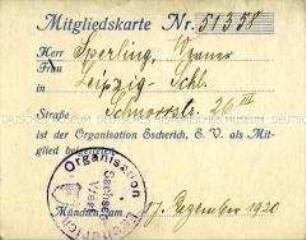 Mitgliedskarte Nr. 51358
Herr Sperling, Werner
Frau
in Leipzig - Schl.
Straße Schnorrstr. 26 III
ist der Organisation Escherich, E. V. als Mit-
glied beigetreten
Organisation Escherich
Sachsen
West
München am 17. Dezember 1920